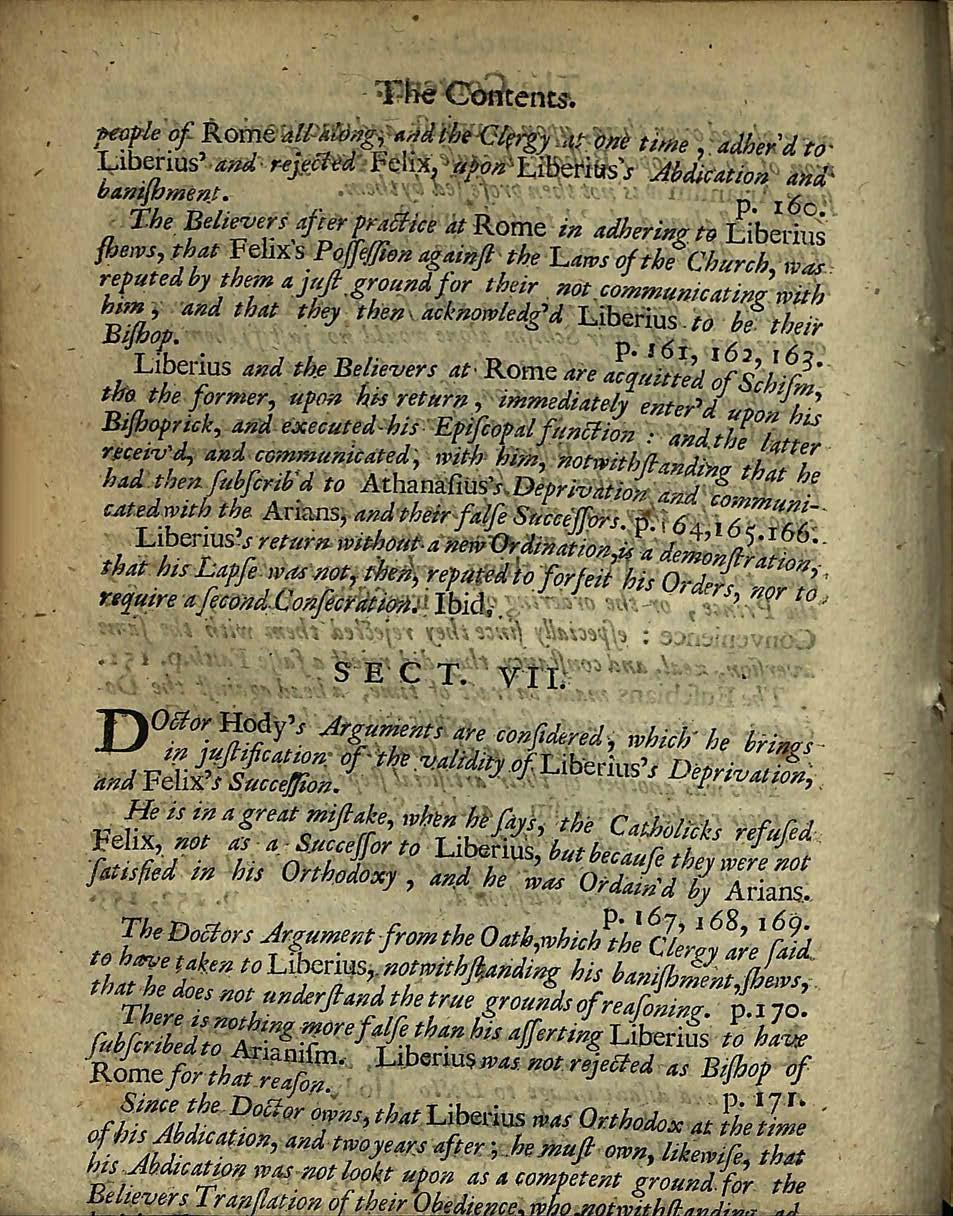 The Contents.
people of Rome all along, and the Clergy at one time, adher'd to
Liberius' and rejected Felix, upon Liberius's Abdication and
baniſhment. p. 160.
The Believers after practice at Rome in adhering to Liberius
ſhews, that Felix's Poſſeſſion againſt the Laws of the Church, was
reputed by them a juſt ground for their not communicating with
him; and that they then acknowledg'd Liberius to be their
Biſhop. p. 161, 162, 163.
Liberius and the Believers at Rome are acquitted of Schiſm,
tho the former, upon his return, immediately enter'd upon his
Biſhoprick, and executed his Epiſcopal function: and the latter
receiv'd, and communicated, with him, notwithſtanding that he
had then ſubſcrib'd to Athanaſius's Deprivation and communi-
cated with the Arians, and their falſe Succeſſors. p. 164, 165. 166.
Liberius's return without a new Ordination, is a demonſtration,
that his Lapſe was not, then, reputed to forfeit his Orders, nor to
require a ſecond Conſecration. Ibid.
SECT. VII.
DOctor Hody's Arguments are conſidered, which he brings
in juſtification of the validity of Liberius's Deprivation,
and Felix's Succeſſion.
He is in a great miſtake, when he ſays, the Catholicks refuſed
Felix, not as a Succeſſor to Liberius, but becauſe they were not
ſatisfied in his Orthodoxy, and he was Ordain'd by Arians.
p. 167, 168, 169.
The Doctors Argument from the Oath, which the Clergy are ſaid
to have taken to Liberius, notwithſtanding his baniſhment, ſhews,
that he does not underſtand the true grounds of reaſoning. p. 170.
There is nothing more falſe than his aſſerting Liberius to have
ſubſcribed to Arianiſm. Liberius was not rejected as Biſhop of
Rome for that reaſon. p. 171.
Since the Doctor owns, that Liberius was Orthodox at the time
of his Abdication, and two years after; he muſt own, likewiſe, that
his Abdication was not lookt upon as a competent ground for the
Believers Tranſlation of their Obedience, who notwithſtanding ad-